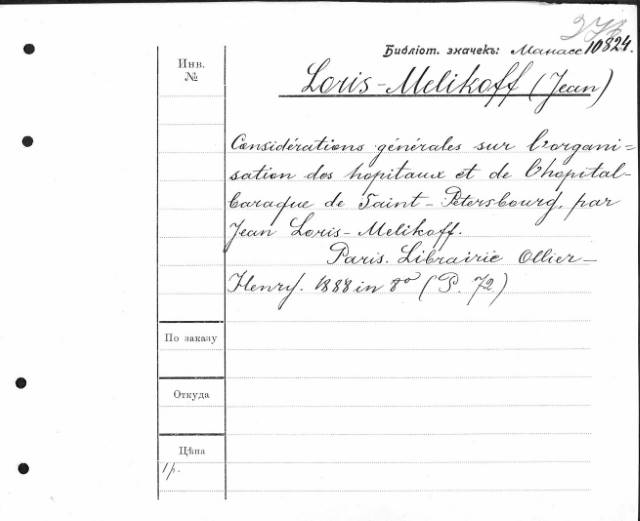 Библіот. значекъ: Манасс 10824.
Инв.
№
Loris-Melikoff (Jean)
Considérations générales sur l'organi=
sation des hopitaux et de l'hopital-
baraque de Saint-Petersbourg, par
Jean Loris-Melikoff.
Paris. Librairie Ollier-
Henry. 1888 in 8° (P. 72)
По заказу
Откуда
Цѣна
1 р.